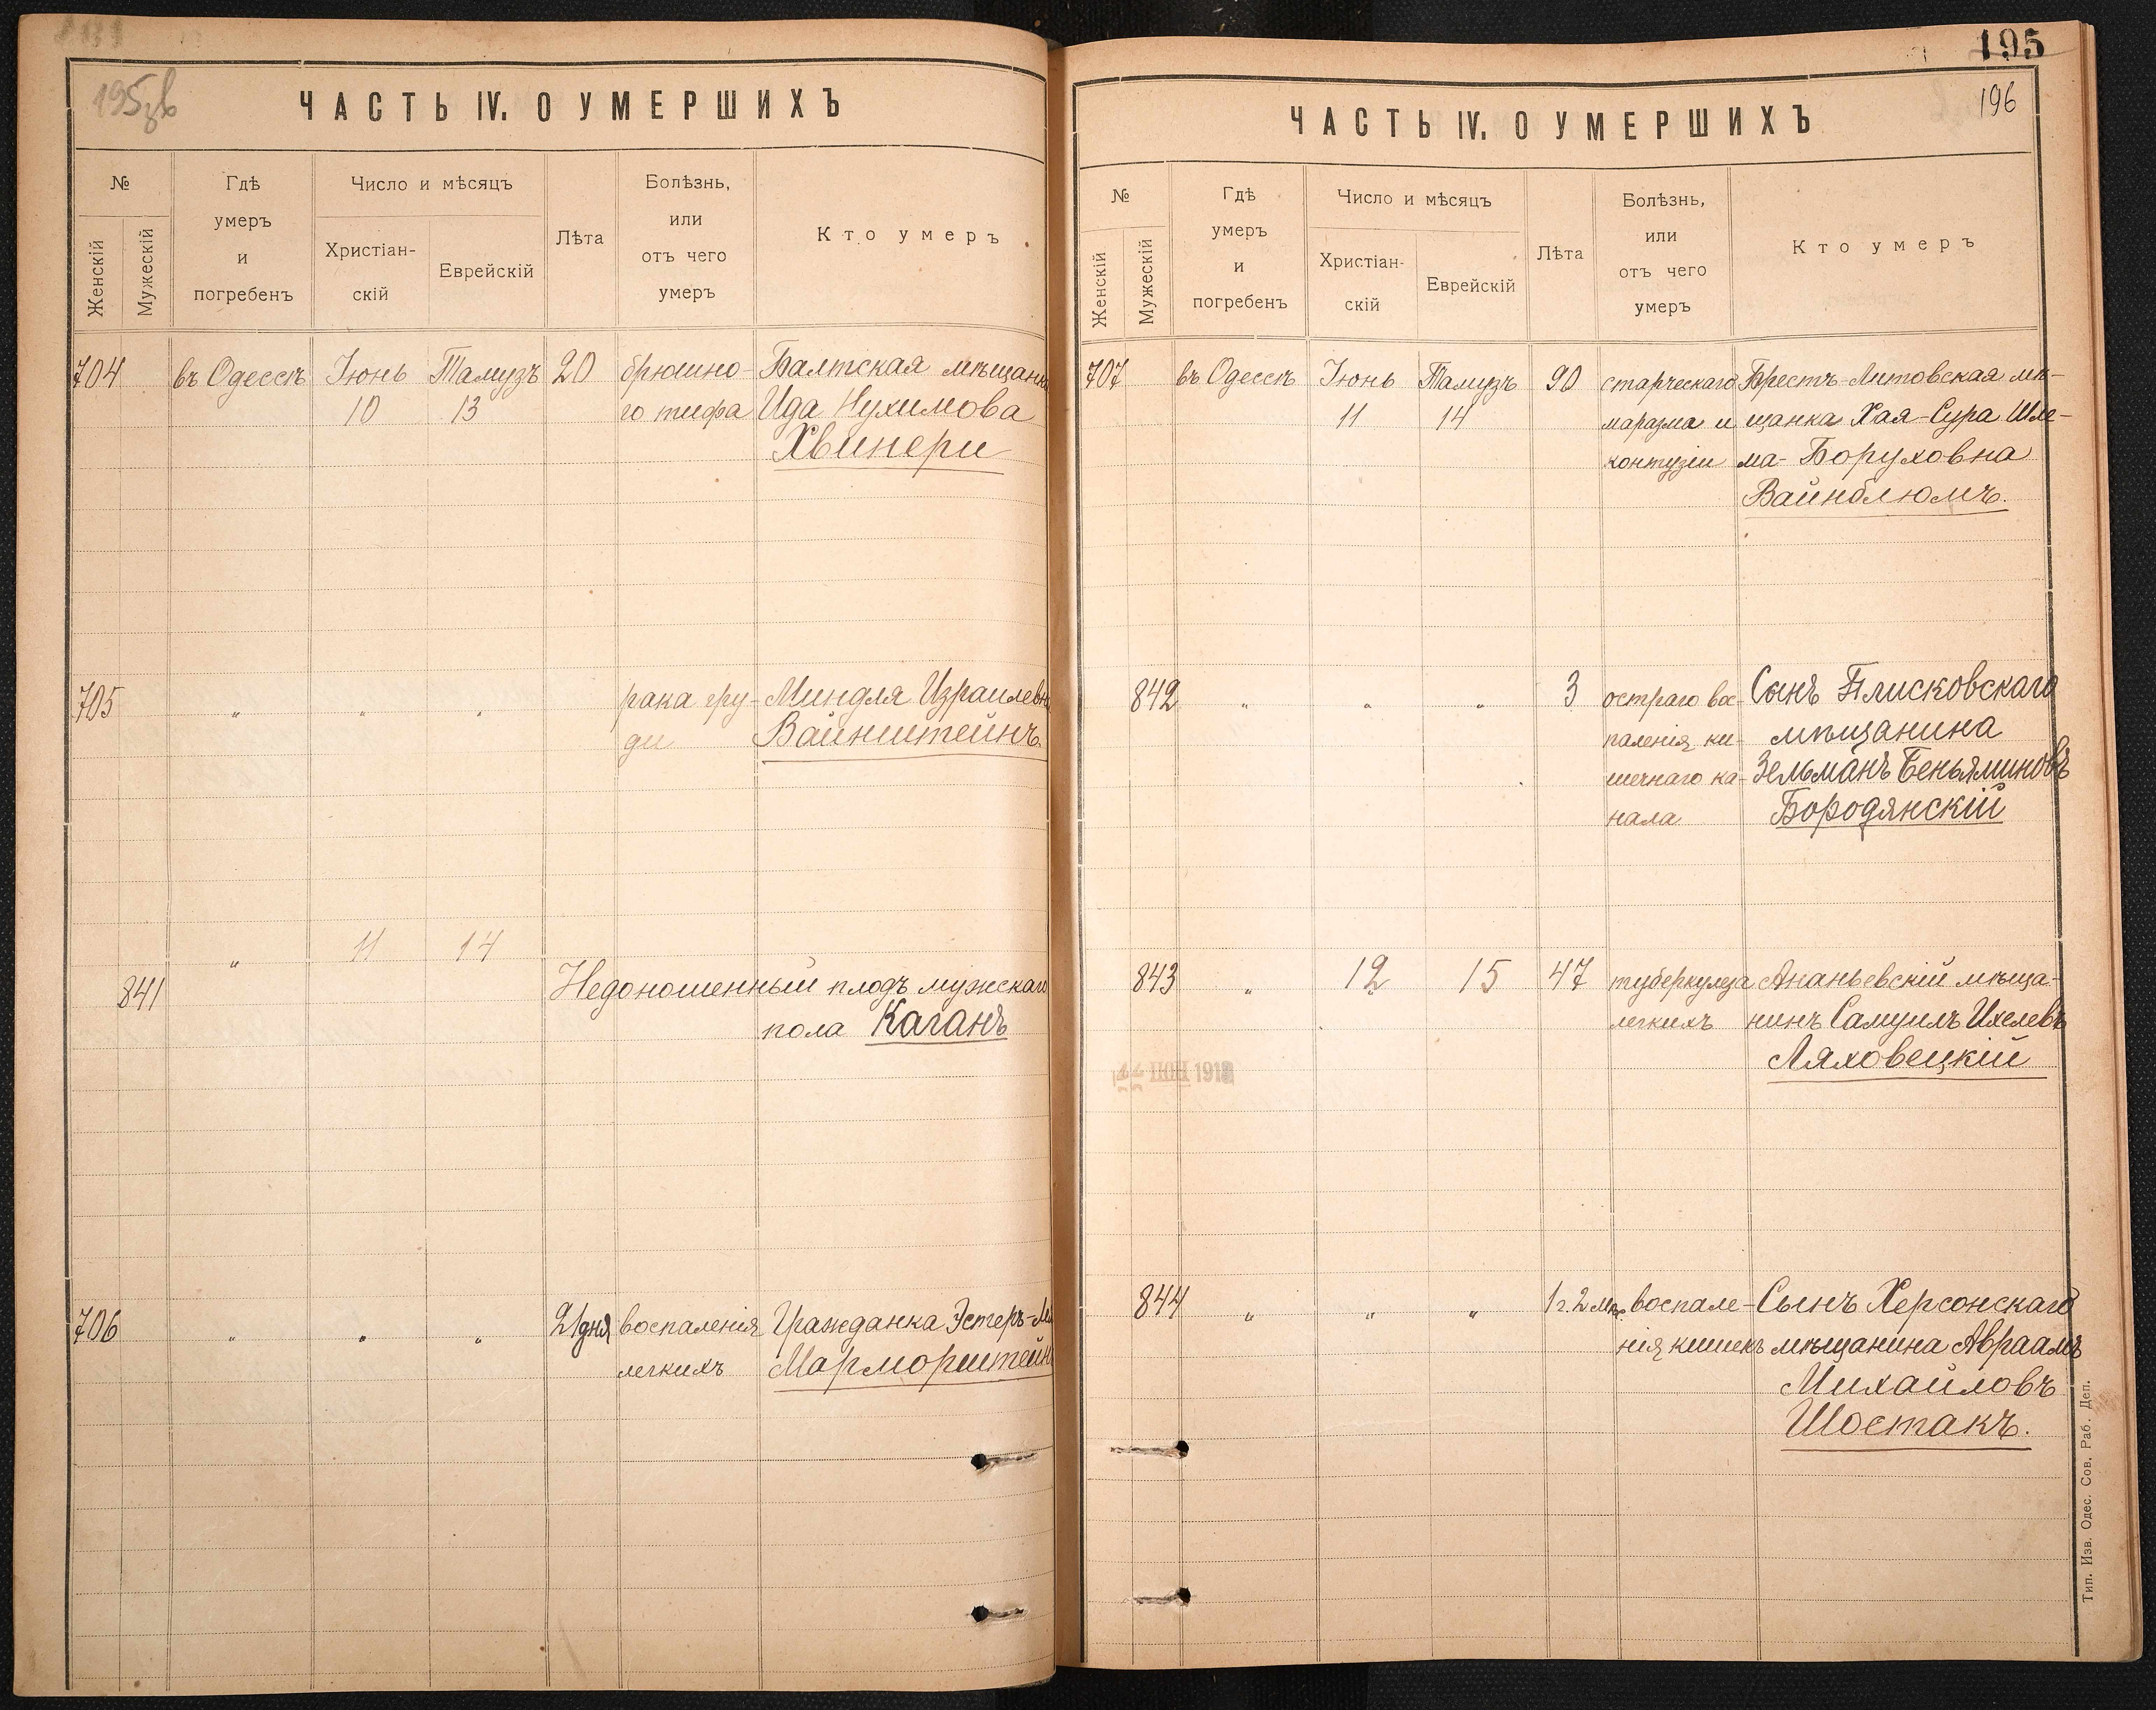 195зв
ЧАСТЬ IV. О УМЕРШИХЪ
№
Женскій
Мужескій
Гдѣ
умеръ
и
погребенъ
Число и мѣсяцъ
Христіан-
скій
Еврейскій
Лѣта
Болѣзнь,
или
отъ чего
умеръ
Кто умеръ
704 въ Одессѣ Іюнь Тамузъ 20 брюшно- Балтская мѣщанка
10 13 го тифа Ида Нухимова
Хвинери
705 " " " рака гру- Миндля Израилевна
ди Вайнштейнъ.
" 11 14
841 Недоношенный плодъ мужскаго
пола Каганъ
706 " " " 21 дня воспаленія Гражданка Эстеръ-
легкихъ Марморштейнъ
195
196
ЧАСТЬ IV. О УМЕРШИХЪ
№
Женскій
Мужескій
Гдѣ
умеръ
и
погребенъ
Число и мѣсяцъ
Христіан-
скій
Еврейскій
Лѣта
Болѣзнь,
или
отъ чего
умеръ
Кто умеръ
707 въ Одессѣ Іюнь Тамузъ 90 старческаго Брестъ-Литовская мѣ-
11 14 маразма и щанка Хая-Сура Шле-
контузіи ма-Боруховна
Вайнблюмъ.
842 " " " 3 остраго вос- Сынъ Плисковскаго
паленія ки- мѣщанина
шечнаго ка- Зельманъ Беньяминовъ
нала Бородянскій
843 " 12 15 47 туберкулеза Ананьевскій мѣща-
легкихъ нинъ Самуилъ Ихелевъ
Ляховецкій
ІЮН
844 " " " 1 г. 2 мѣс. воспале- Сынъ Херсонскаго
нія кишекъ мѣщанина Авраамъ
Михайловъ
Шостакъ.
Тип. Изв. Одес. Сов. Раб. Деп.